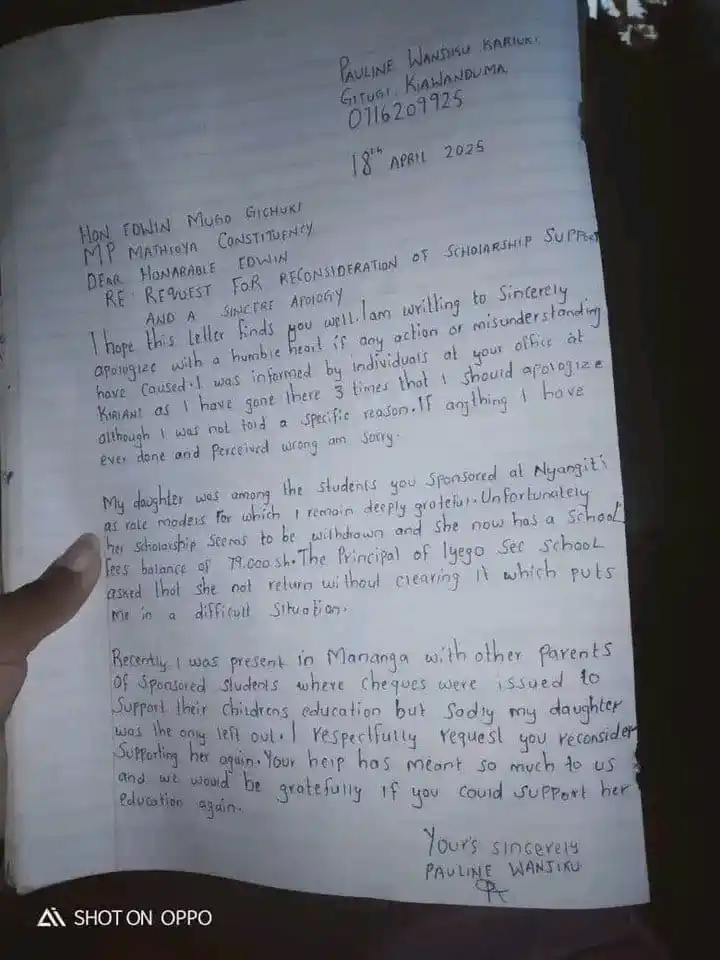 PAULINE WANJIKU KARIUKI
GITUGI, KIAWANDUMA
0716209925
18th APRIL 2025
HON EDWIN MUGO GICHUKI
MP MATHIOYA CONSTITUENCY
DEAR HONARABLE EDWIN
RE: REQUEST FOR RECONSIDERATION OF SCHOLARSHIP SUPPORT
AND A SINCERE APOLOGY
I hope this letter finds you well. I am writting to sincerely
apologize with a humble heart if any action or misunderstanding
have caused. I was informed by individuals at your office at
KIRIANI as I have gone there 3 times that I should apologize
although I was not told a specific reason. If anything I have
ever done and perceived wrong am sorry.
My daughter was among the students you sponsored at Nyangiti
as role models for which I remain deeply grateful. Unfortunately
her scholarship seems to be withdrawn and she now has a school
fees balance of 79.000 sh. The Principal of Iyego Sec School
asked that she not return without clearing it which puts
me in a difficult situation.
Recently I was present in Mananga with other parents
of sponsored students where cheques were issued to
support their childrens education but sadly my daughter
was the only left out. I respectfully request you reconsider
supporting her again. Your help has meant so much to us
and we would be gratefully if you could support her
education again.
Your's sincerely
PAULINE WANJIKU
SHOT ON OPPO